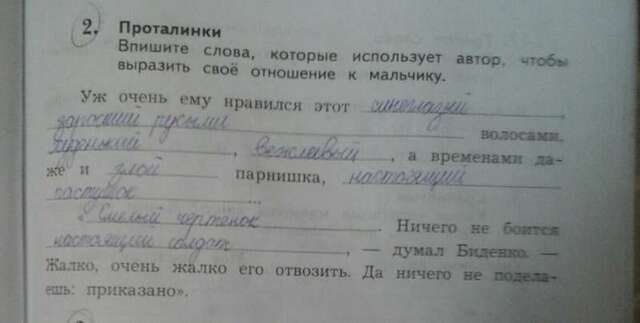 2. Проталинки
Впишите слова, которые использует автор, чтобы
выразить своё отношение к мальчику.
Уж очень ему нравился этот синеглазый,
заросший русыми волосами,
худенький, вежливый, а временами да-
же и злой парнишка, настоящий
пастушок...
"Смелый чертёнок. Ничего не боится
настоящий солдат, — думал Биденко. —
Жалко, очень жалко его отвозить. Да ничего не подела-
ешь: приказано».